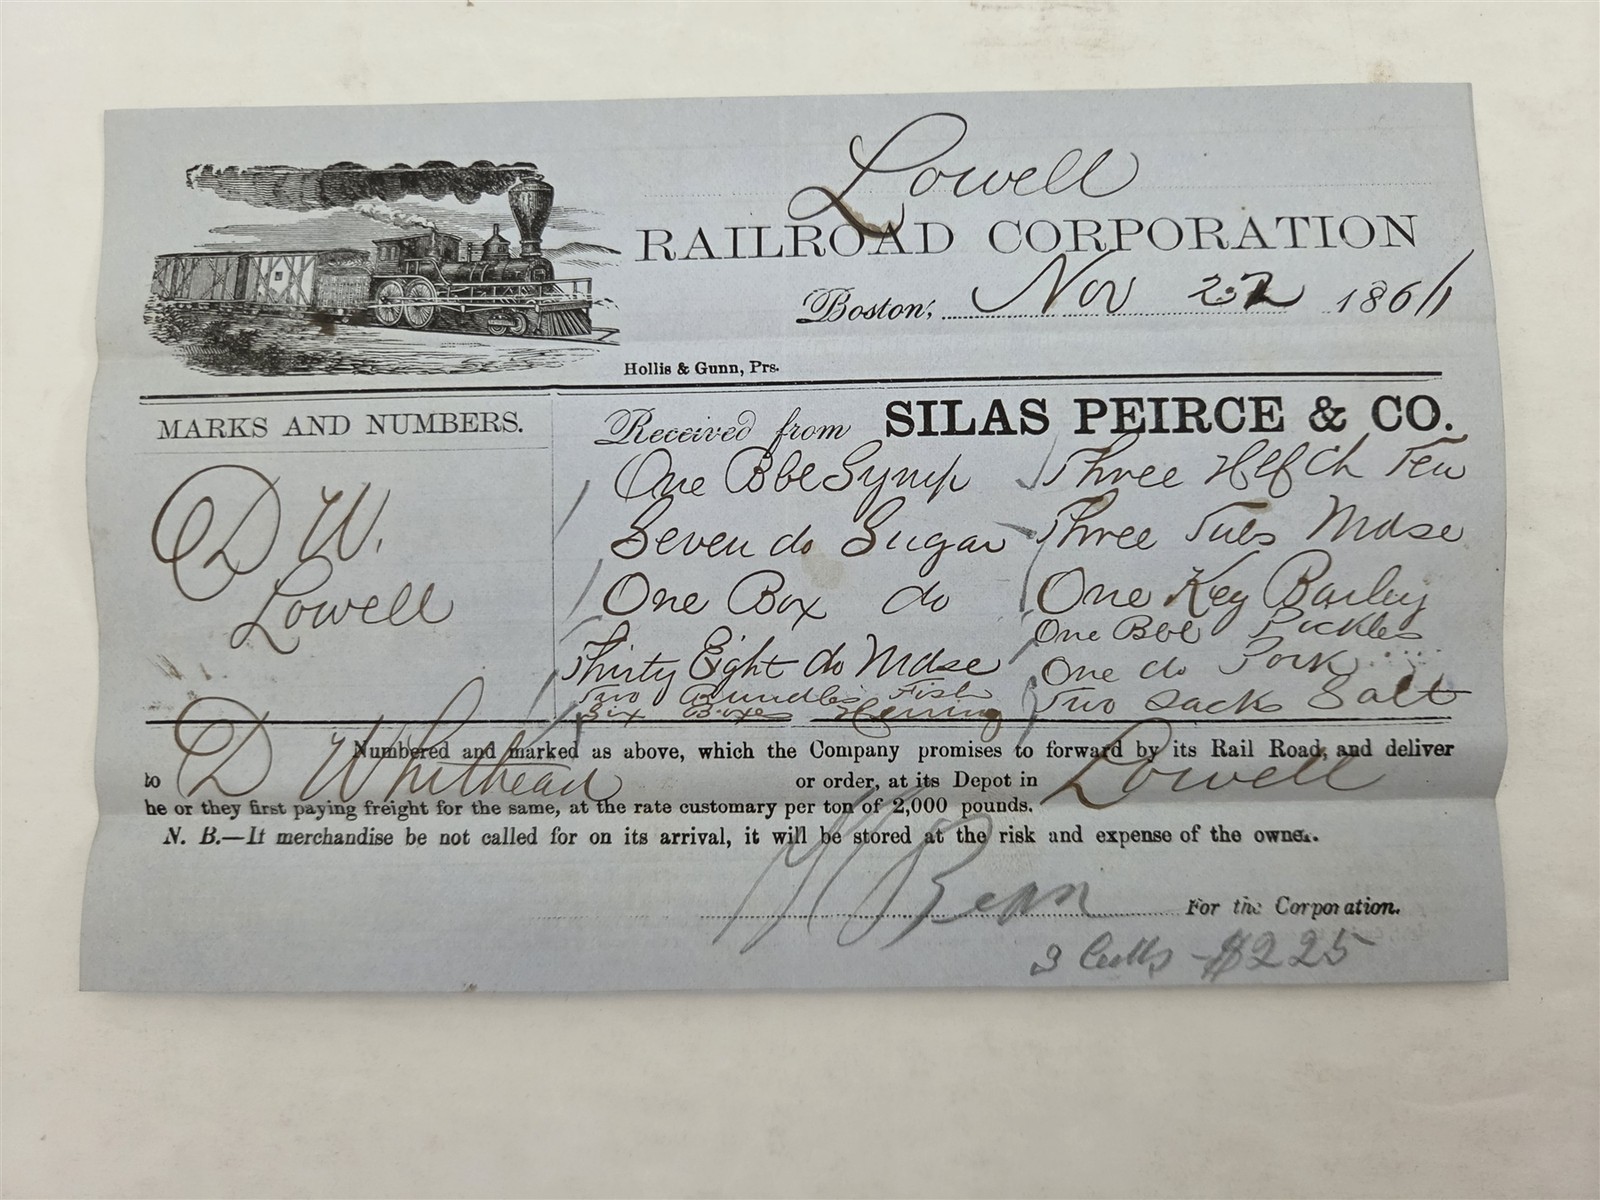 Lowell
RAILROAD CORPORATION
Boston, Nov 22 1861
Hollis & Gunn, Prs.
MARKS AND NUMBERS.
D W.
Lowell
Received from SILAS PEIRCE & CO.
One Bbl Syrup
Seven do Sugar
One Box do
Thirty Eight do Mdse
Two Bundles Fish
Six Boxes Herring
Three Hlf Ch Tea
Three Tubs Mdse
One Keg Barley
One Bbl Pickles
One do Pork
Two Sacks Salt
Numbered and marked as above, which the Company promises to forward by its Rail Road, and deliver
to D Whithead or order, at its Depot in Lowell
he or they first paying freight for the same, at the rate customary per ton of 2,000 pounds.
N. B.—If merchandise be not called for on its arrival, it will be stored at the risk and expense of the owner.
For the Corporation.
$2 25